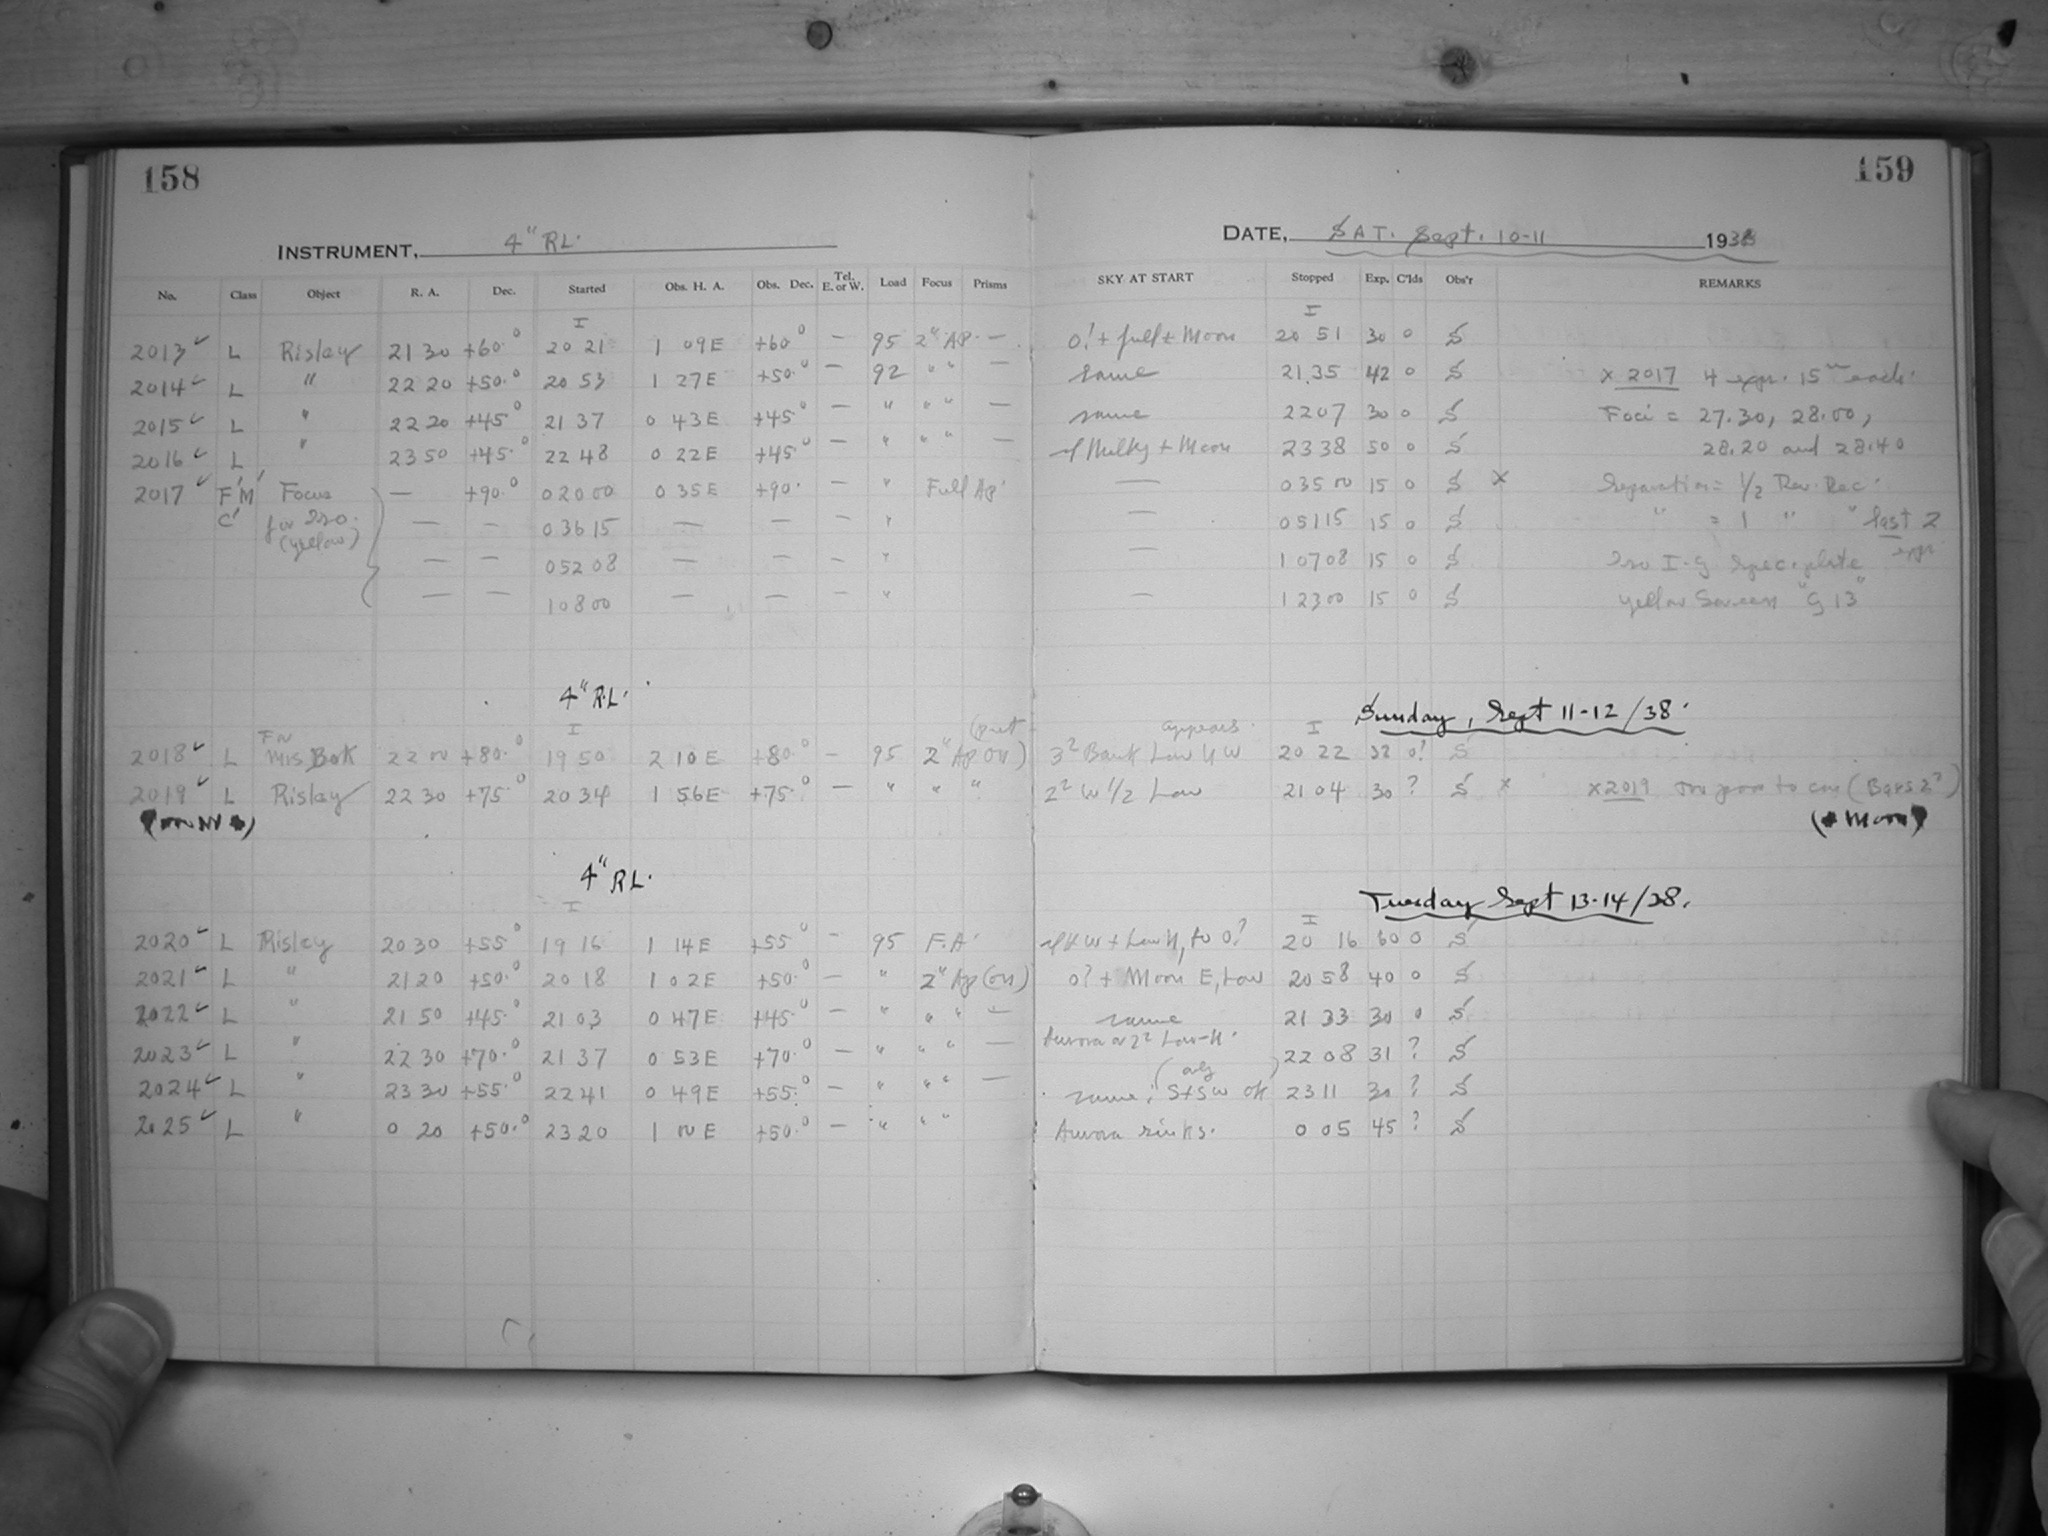 158
159
INSTRUMENT, 4" RL.
DATE, SAT. Sept. 10-11 1938
No. Class Object R. A. Dec. Started Obs. H. A. Obs. Dec. Tel. E. or W. Load Focus Prisms SKY AT START Stopped Exp. C'lds Obs'r REMARKS
I I
2013 ✓ L Risley 21 30 +60.° 20 21 1 09E +60° — 95 2" Ap. — 0! + full + Moon 20 51 30 0 S
2014 ✓ L " 22 20 +50.° 20 53 1 27E +50.° — 92 " " — same 21.35 42 0 S x 2017 4 exps. 15m each.
2015 ✓ L " 22 20 +45° 21 37 0 43E +45° — " " " — same 22 07 30 0 S Foci = 27.30, 28.00,
2016 ✓ L " 23 50 +45.° 22 48 0 22E +45° — " " " — Milky + Moon 23 38 50 0 S 28.20 and 28.40
2017 ✓ F'M' Focus — +90.° 0 20 00 0 35E +90. — " Full Ap. — 0 35 00 15 0 S x Separation = 1/2 Rev. Dec.
C' for Iso. — — 0 36 15 — — — " — 0 51 15 15 0 S " = 1 " " last 2
(yellow) — — 0 52 08 — — — " — 1 07 08 15 0 S Iso I-G Spec. plate exps
— — 1 08 00 — — — " — 1 23 00 15 0 S yellow Screen "G 13"
4" R.L. Sunday, Sept 11-12/38.
For I (put appears I
2018 ✓ L Mis Bok 22 00 +80.° 19 50 2 10E +80.° — 95 2" Ap on) 3² Bank Low N W 20 22 32 0! S
2019 ✓ L Risley 22 30 +75° 20 34 1 56E +75.° — " " " 2² W 1/2 Low 21 04 30 ? S x x 2019 (Bars 2?)
(Moon)
4" RL. Tuesday Sept 13-14/38.
I I
2020 ✓ L Risley 20 30 +55° 19 16 1 14E +55° — 95 F.A. W + Low N, to 0? 20 16 60 0 S
2021 ✓ L " 21 20 +50.° 20 18 1 02E +50.° — " 2" Ap (on) 0? + Moon E, Low 20 58 40 0 S
2022 ✓ L " 21 50 +45.° 21 03 0 47E +45° — " " " — same 21 33 30 0 S
2023 ✓ L " 22 30 +70.° 21 37 0 53E +70.° — " " " — Aurora 2² Low-N. 22 08 31 ? S
2024 ✓ L " 23 30 +55° 22 41 0 49E +55.° — " " " — same; S+SW OK 23 11 30 ? S
2025 ✓ L " 0 20 +50.° 23 20 1 00E +50.° — " " " Aurora sinks. 0 05 45 ? S